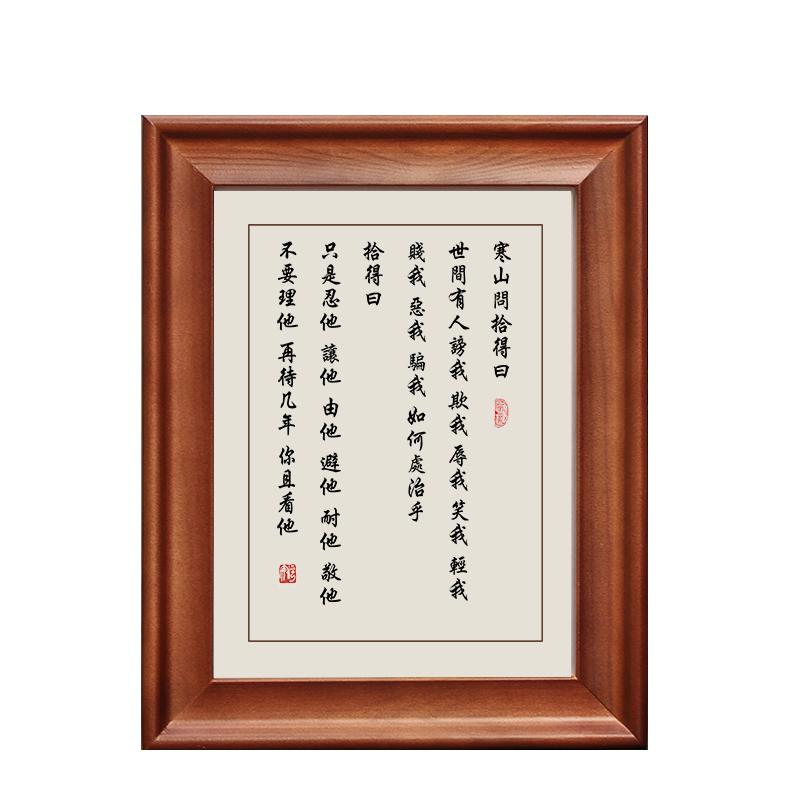 寒山問拾得曰
世間有人謗我 欺我 辱我 笑我 輕我
賤我 惡我 騙我 如何處治乎
拾得曰
只是忍他 讓他 由他 避他 耐他 敬他
不要理他 再待几年 你且看他